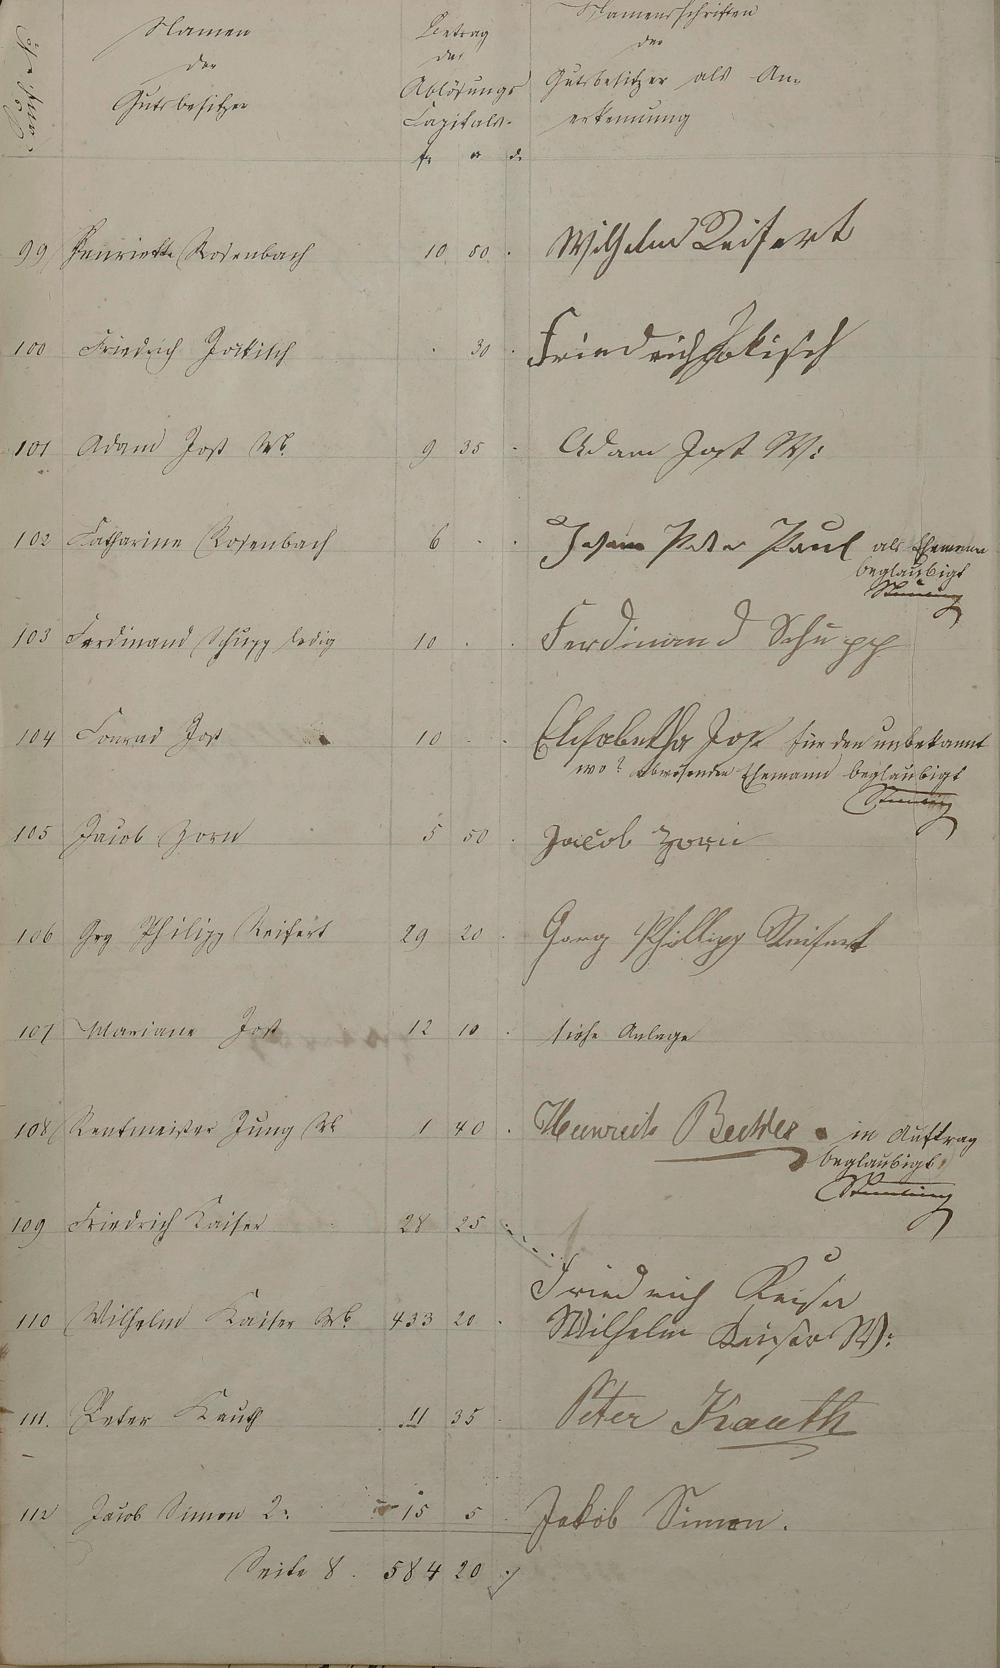 Namen
der
Gutsbesitzer
Betrag
des
Ablösungs
Capitals.
Namensschriften
der
Gutsbesitzer als An-
erkennung
99 Henriette Rosenbach 10 50 . Wilhelm Reifert
100 Friedrich Jockisch . 30 . Friedrich Jokisch
101 Adam Jost Wb. 9 35 . Adam Jost W:
102 Catharine Rosenbach 6 . . Johann Peter Paul als Ehemann
beglaubigt
103 Ferdinand Schupp ledig 10 . . Ferdinand Schupp
104 Conrad Jost 10 . . Elisabetha Jost für den unbekannt
wo? abwesenden Ehemann beglaubigt
105 Jacob Zorn 5 50 . Jacob Zorn
106 Grg Philipp Reifert 29 20 . Georg Phillipp Reifert
107 Mariane Jost 12 10 . siehe Anlage
108 Rentmeister Jung Wb 1 40 . Heinrich in Auftrag
beglaubigt
109 Friedrich Kaiser 28 25
Friedrich Keiser
110 Wilhelm Kaiser Wb. 433 20 . Wilhelm Keiser W:
111. Peter Kauth 11 35 Peter Kauth
112 Jacob Simon 2r. 15 5 Jakob Simon.
Seite 8. 584 20